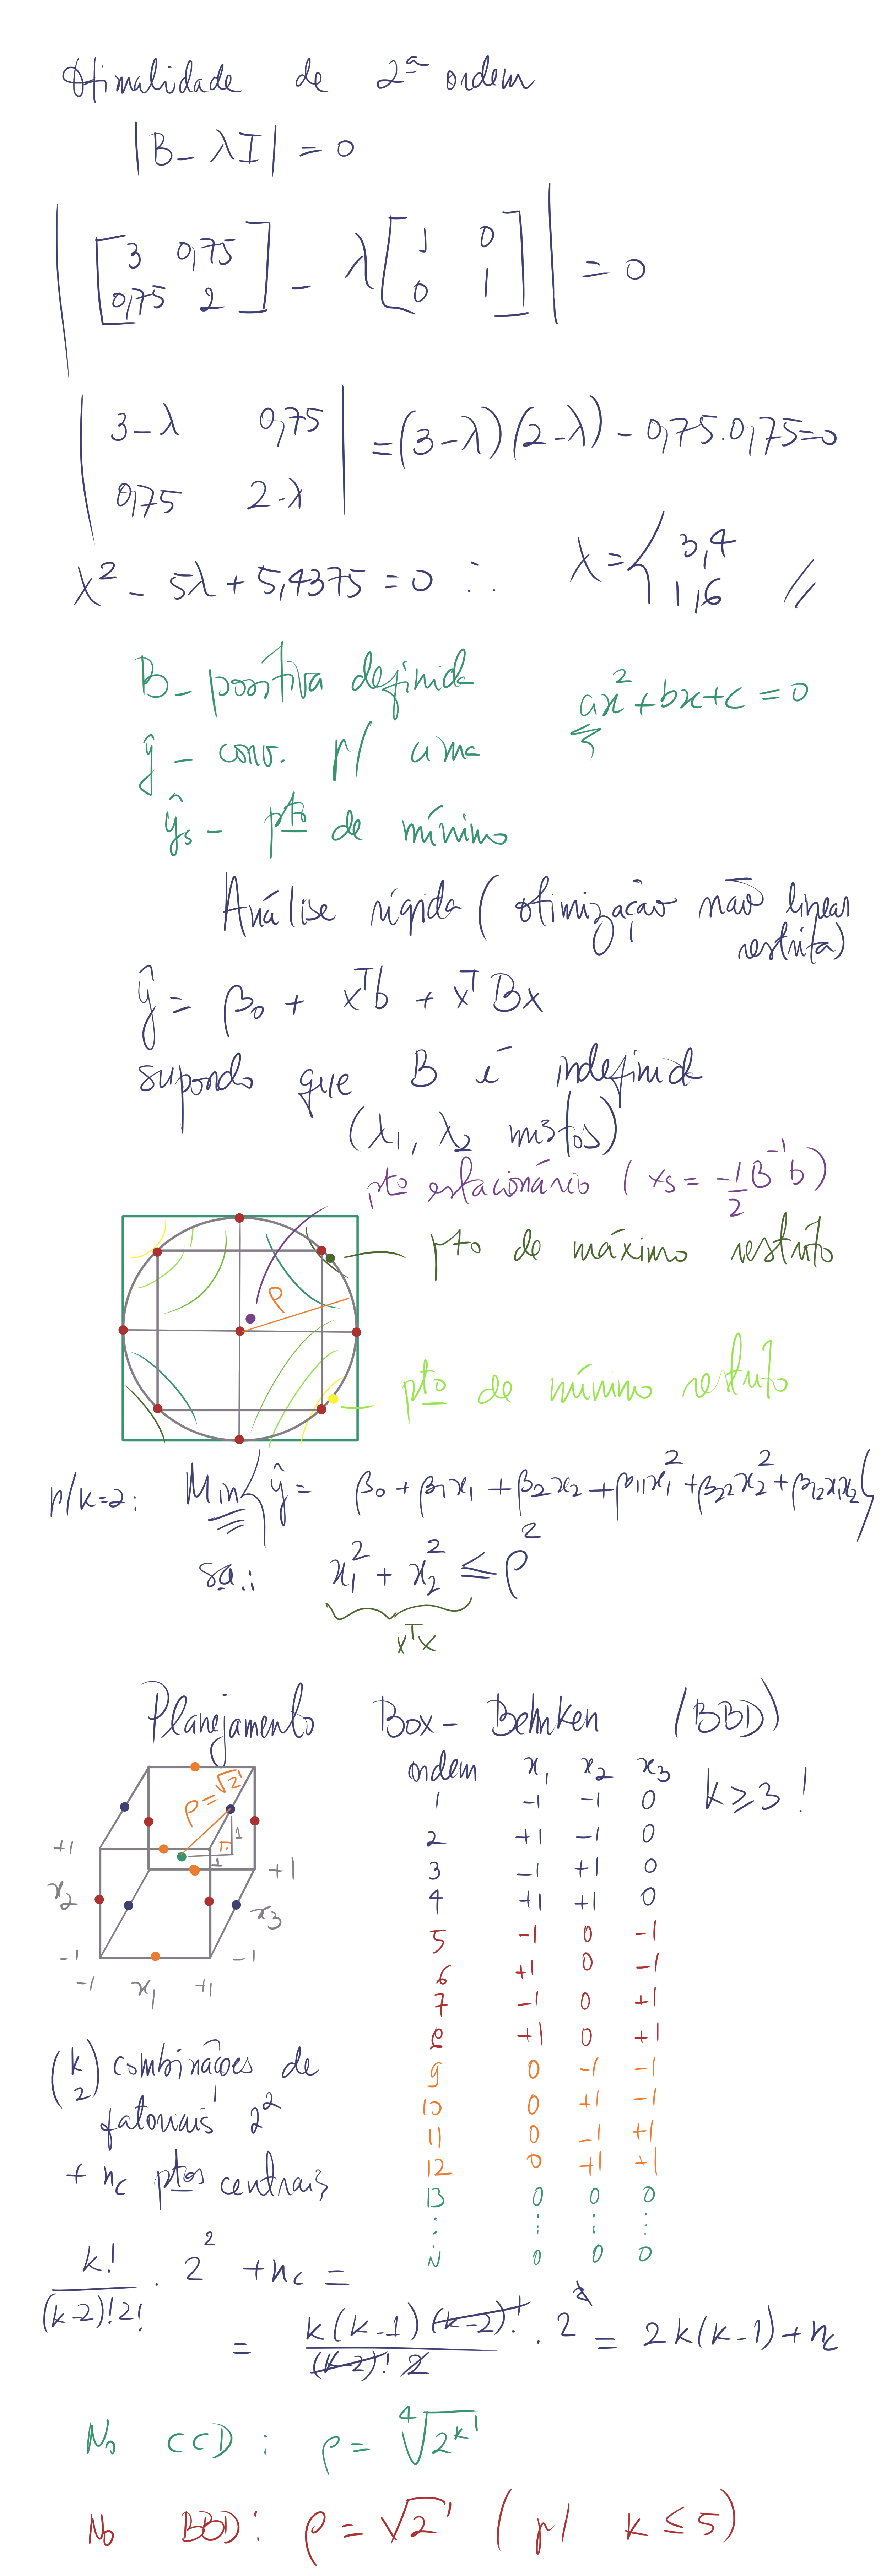 Otimalidade de 2ª ordem
|B - λI| = 0
| [3 0,75; 0,75 2] - λ [1 0; 0 1] | = 0
| 3-λ 0,75; 0,75 2-λ | = (3-λ)(2-λ) - 0,75.0,75=0
λ² - 5λ + 5,4375 = 0 ∴ λ = { 3,4 1,6 //
B - positiva definida
ax² + bx + c = 0
ŷ - conv. p/ cima
ŷs - pto de mínimo
Análise rígida (otimização não linear restrita)
ŷ = β₀ + xᵀb + xᵀBx
supondo que B é indefinida
(λ₁, λ₂ mistos)
pto estacionário (xs = -1/2 B⁻¹b)
pto de máximo restrito
ρ
pto de mínimo restrito
p/k=2: Min { ŷ = β₀ + β₁x₁ + β₂x₂ + β₁₁x₁² + β₂₂x₂² + β₁₂x₁x₂ }
s.a.: x₁² + x₂² ≤ ρ²
xᵀx
Planejamento Box-Behnken (BBD)
ordem x₁ x₂ x₃
k ≥ 3 !
1 -1 -1 0
2 +1 -1 0
3 -1 +1 0
4 +1 +1 0
5 -1 0 -1
6 +1 0 -1
7 -1 0 +1
8 +1 0 +1
9 0 -1 -1
10 0 +1 -1
11 0 -1 +1
12 0 +1 +1
13 0 0 0
⋮ ⋮ ⋮ ⋮
N 0 0 0
ρ = √2
1
1
+1
x₂
-1
-1 x₁ +1
-1
x₃
+1
(k 2) combinações de
fatoriais 2²
+ nc ptos centrais
k!/((k-2)!2!) . 2² + nc =
= k(k-1)(k-2)!/((k-2)! 2) . 2² = 2k(k-1) + nc
No CCD: ρ = ⁴√2ᵏ
No BBD: ρ = √2 (p/ k ≤ 5)